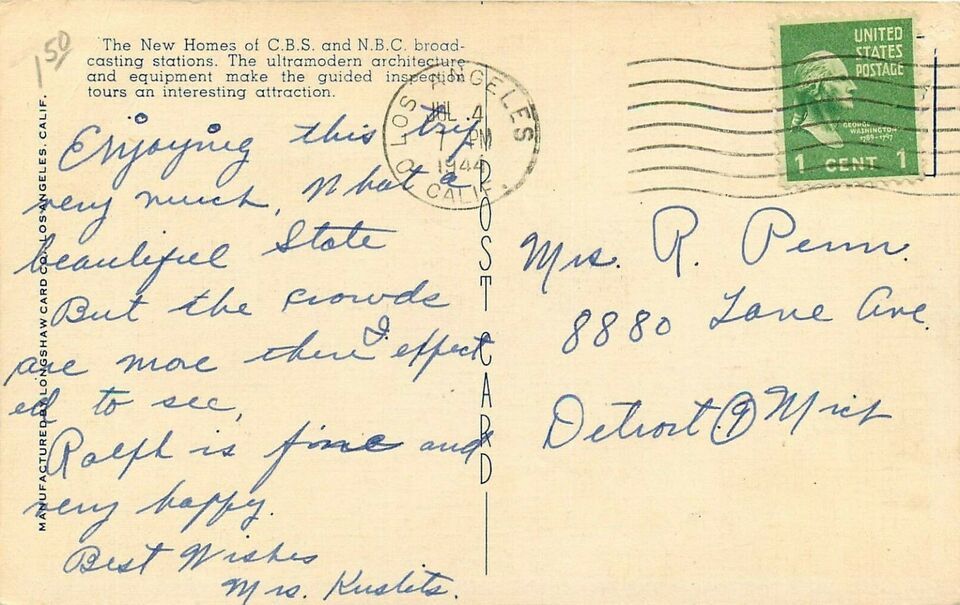 1.50
The New Homes of C.B.S. and N.B.C. broad-
casting stations. The ultramodern architecture
and equipment make the guided inspection
tours an interesting attraction.
LOS ANGELES
CALIF.
JUL 4
1 PM
1944
UNITED
STATES
POSTAGE
GEORGE
WASHINGTON
1789-1797
1 CENT 1
Enjoying this trip
very much, What a
beautiful State
But the crowds
are more then I effect
ed to see,
Ralph is fine and
very happy.
Best Wishes
Mrs. Kuslits.
POST CARD
Mrs. R. Penn.
8880 Lane Ave.
Detroit 9 Mich
MANUFACTURED BY LONGSHAW CARD CO. LOS ANGELES, CALIF.